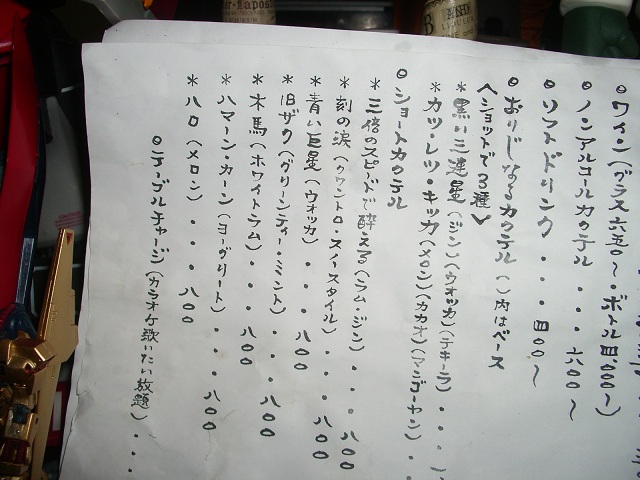 ◎ワイン(グラス六五〇〜・ボトル四、〇〇〇〜)
◎ノンアルコールカクテル・・・六〇〇〜
◎ソフトドリンク・・・四〇〇〜
◎おりじなるカクテル( )内はベース
〈ショットで3種〉
*黒い三連星(ジン)(ウォッカ)(テキーラ)・・・
*カツ・レツ・キッカ(メロン)(カカオ)(マンゴーヤン)・・
◎ショートカクテル
*三倍のスピードで酔える(ラム・ジン)・・・八〇〇
*刻の涙(クワントロ・スノースタイル)・・・八〇〇
*青い巨星(ウォッカ)・・・八〇〇
*旧ザク(グリーンティー・ミント)・・・八〇〇
*木馬(ホワイトラム)・・・八〇〇
*ハマーン・カーン(ヨーグリート)・・・八〇〇
*ハロ(メロン)・・・八〇〇
◎テーブルチャージ(カラオケ歌いたい放題)・・・